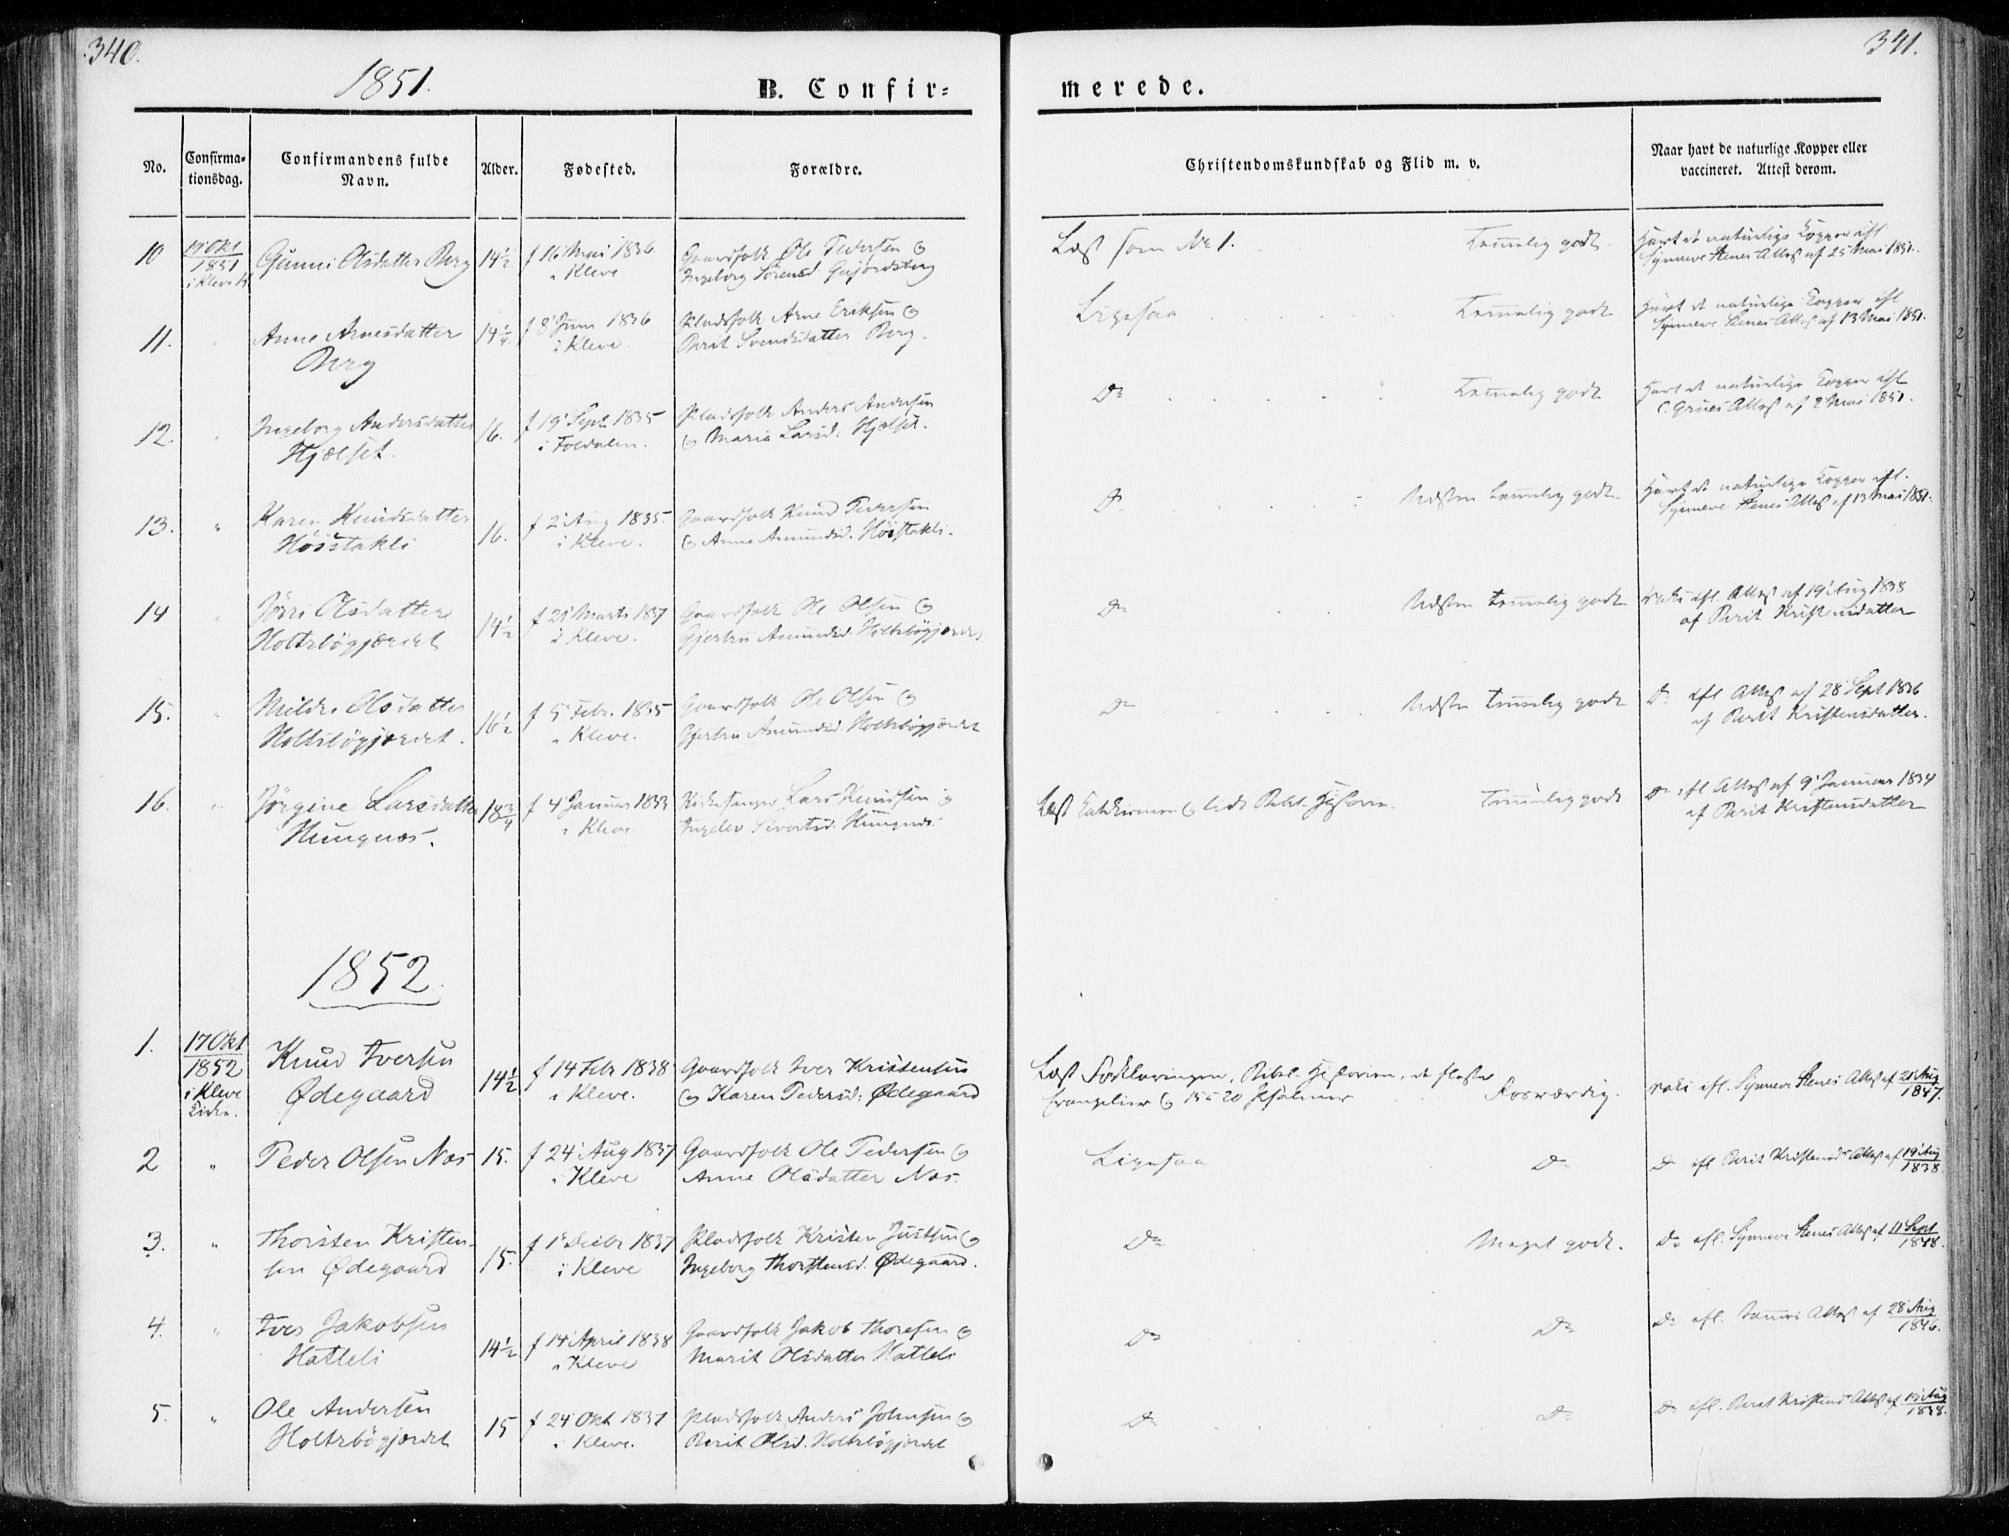 340.
341.
1851.
B. Confir=
merede.
No.
Confirma=
tionsdag.
Confirmandens fulde
Navn.
Alder.
Fødested.
Forældre.
Christendomskundskab og Flid m. v.
Naar havt de naturlige Kopper eller
vaccineret. Attest derom.
10
Okt
1851
i Kleve K
Gunni Olsdatter Berg
14½
f 16 Mai 1836
i Kleve
Gaardfolk Ole Pedersen og
Ingeborg
Læst som No 1.
Temmelig godt.
Havt de naturlige Kopper efl.
Synneve Stenes Attest af 25 Mai 1851.
11.
Anne Arnesdatter
Berg
14¼
f 8 Juni 1836
i Kleve.
Pladsfolk Arne Eriksen og
Berit Svendsdatter Berg.
Ligesaa
Temmelig godt
Havt de naturlige Kopper efl
Synneve Stenes Attest af 13 Mai 1851.
12.
Ingeborg Andersdatter
Hjelset.
16.
f 19 Sept 1835
i
Pladsfolk Anders Andersen
og Marie Larsd. Hjelset.
Do
Temmelig godt
Havt de naturlige Kopper efl
Attest af 2 Mai 1851.
13.
"
Karen Knudsdatter
Höistakli
16.
f 2 Aug 1835.
i Kleve.
Gaardfolk Knud Pedersen
og Anne Amundsd. Höistakli.
Do
Næsten temmelig godt
Havt de naturlige Kopper efl.
Synneve Stenes Attest af 13 Mai 1851.
14
"
Olsdatter
Holtsbögjerdet
14½
f 21 Marts 1837
i Kleve.
Gaardfolk Ole Olsen og
Gjertru Amundsd. Holtsbögjerdet
Do
Næsten temmelig godt
vaki efl. Attest af 19 Aug 1838
af Berit Kristensdatter
15.
"
Mildri Olsdatter
Holtsbögjerdet.
16½
f 5 Febr. 1835
i Kleve.
Gaardfolk Ole Olsen og
Gjertru Amundsd. Holtsbögjerdet
Do
Næsten temmelig godt
Do efl Attest af 28 Sept 1836
af Berit Kristensdatter.
16.
"
Jörgine Larsdatter
Hungnæs.
18¾
f 4 Januar 1833
i Kleve
Kirkesanger Lars Knudsen og
Sivertsd. Hungnæs
Læst Katekismen og lidt Bibl. Historie.
Temmelig godt
Do efl Attest af 9 Januar 1834
af Berit Kristensdatter
1852.
1.
17 Okt
1852
i Kleve
Kirke.
Knud Iversen
Ødegaard
14½
f 14 Febr 1838
i Kleve.
Gaardfolk Iver Kristensen
og Karen Pedersd. Ødegaard
Læst Forklaringen, Bibl. Historien, de fleste
Evangelier og 15 a 20 Psalmer
Rosværdig.
vaki efl. Synneve Stenes Attest af 21 Aug
1847.
2
"
Peder Olsen Næs
15.
f 24 Aug 1837
i Kleve
Gaardfolk Ole Pedersen og
Anne Olsdatter Næs.
Ligesaa
Do
Do efl Berit Kristensds Attest af 19 Aug
1838.
3.
"
Thorsten Kristen-
sen Ødegaard
15.
f 1 Decbr 1837
i Kleve
Pladsfolk Kristen Justsen og
Ingeborg Thorstensd. Ødegaard.
Do
Meget godt.
Do efl. Synneve Stenes Attest af 11 Sept
1848.
4.
"
Iver Jakobsen
Hatleli
14½
f 14 April 1838
i Kleve
Gaardfolk Jakob Thoresen og
Marit Olsdatter Hatleli
Do
Do
Do efl. Sammes Attest af 28 Aug
1846.
5.
"
Ole Andersen
Holtsbögjerdet
15
f 24 Okt 1837
i Kleve.
Pladsfolk Anders Johnsen og
Berit Olsd. Holtsbögjerdet
Do
Do
Do efl. Berit Kristensds Attest af 19 Aug
1838.